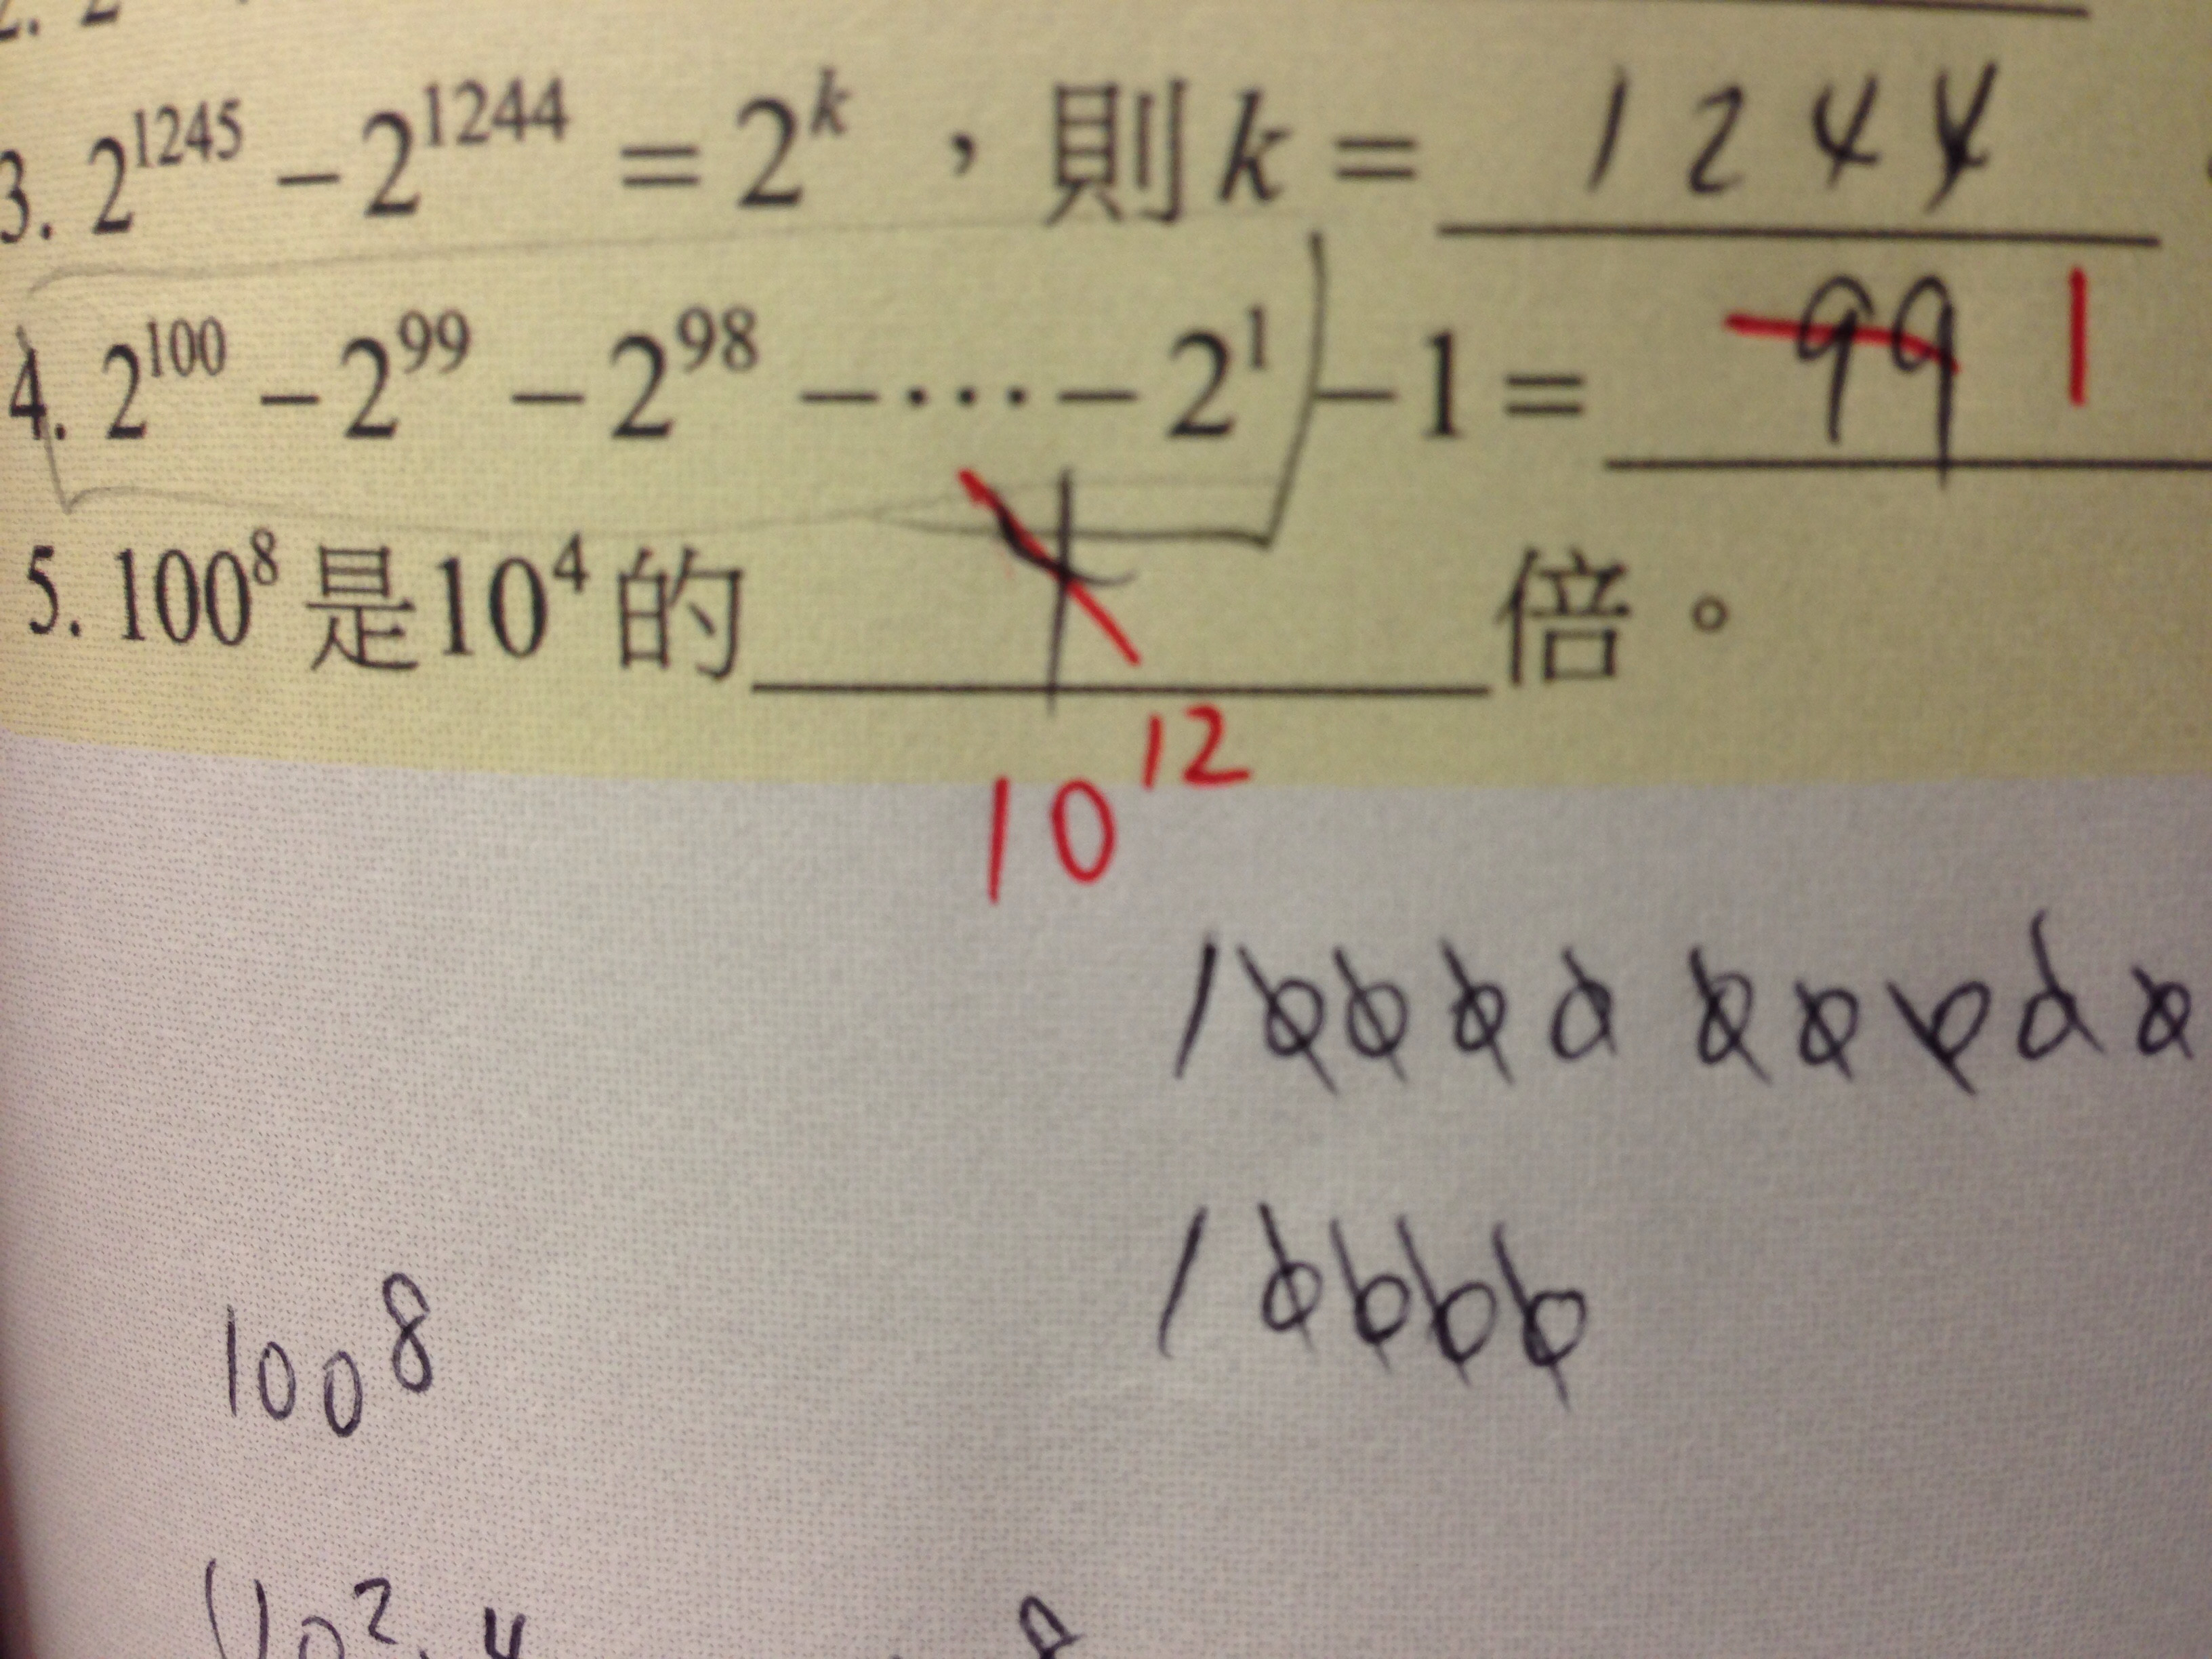 3. 2^1245 − 2^1244 = 2^k ，則 k = 1244
4. 2^100 − 2^99 − 2^98 − ⋯ − 2^1 − 1 = 99 1
5. 100^8 是 10^4 的 倍。
10^12
1000000000
10000
100^8